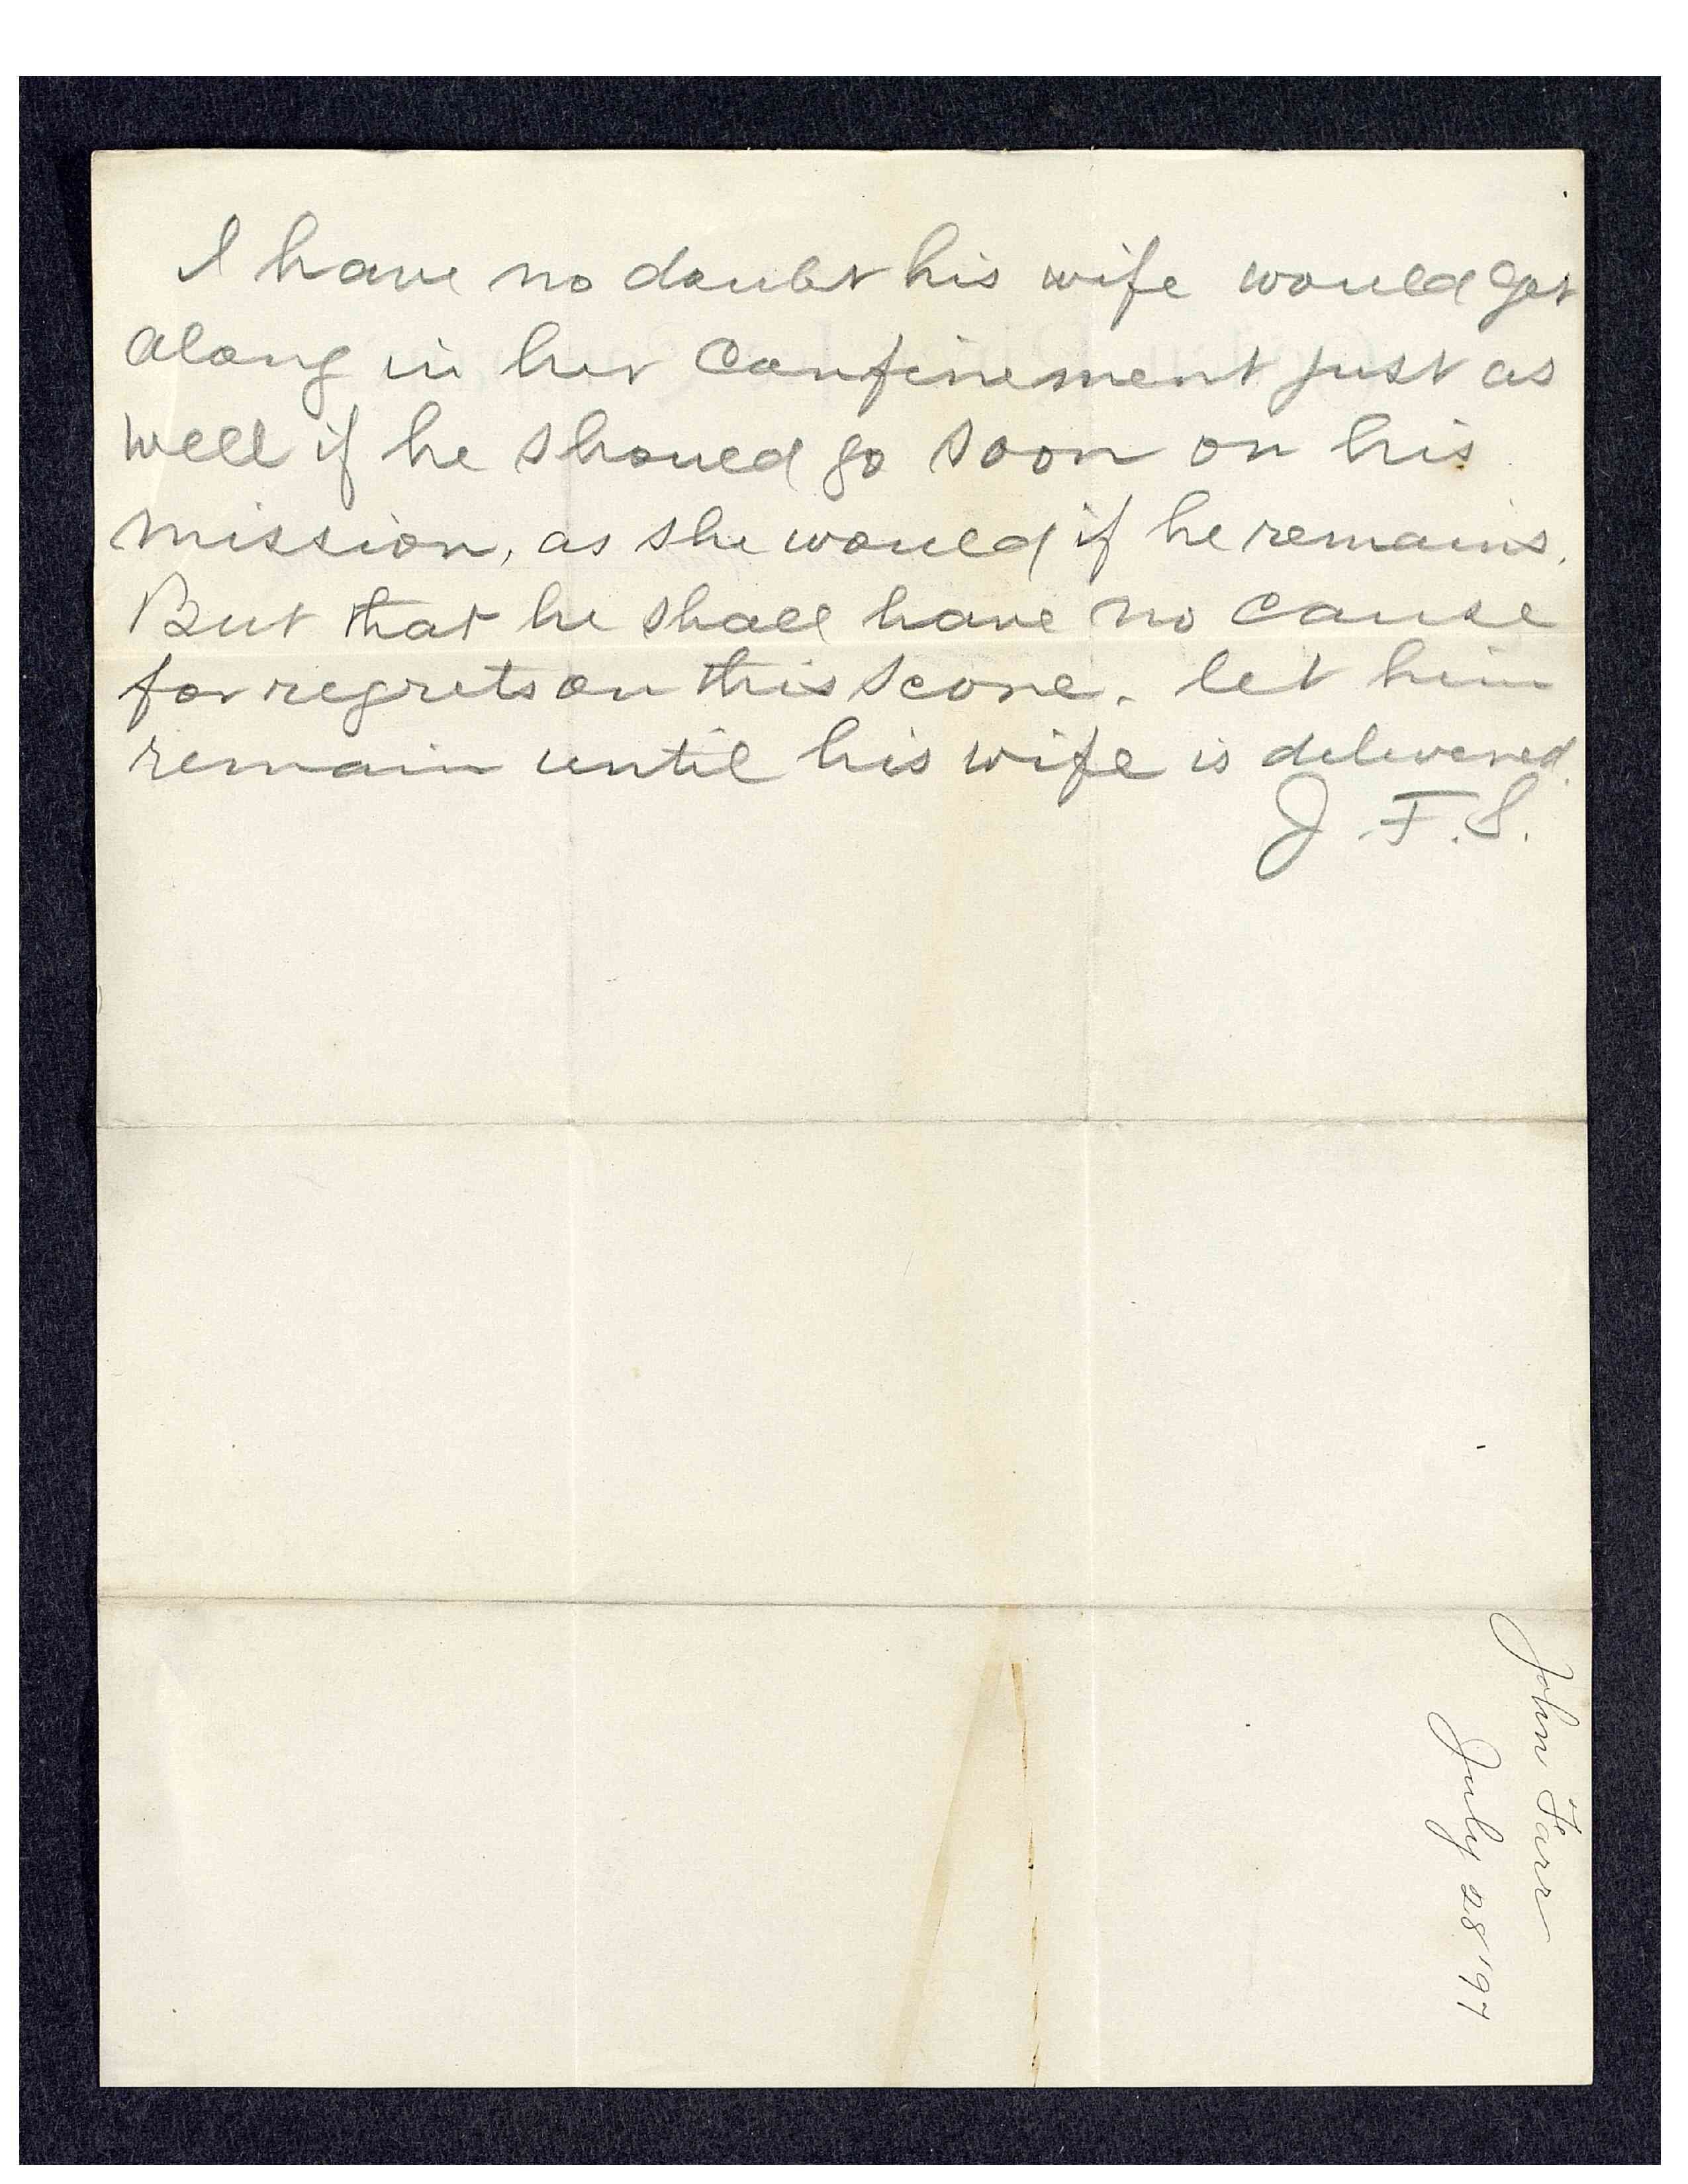 I have no doubt his wife would get
along in her confinement just as
well if he should go soon on his
mission, as she would if he remains.
But that he shall have no cause
for regrets on this score, let him
remain until his wife is delivered.
J. F. S.
John Farr
July 28 '97